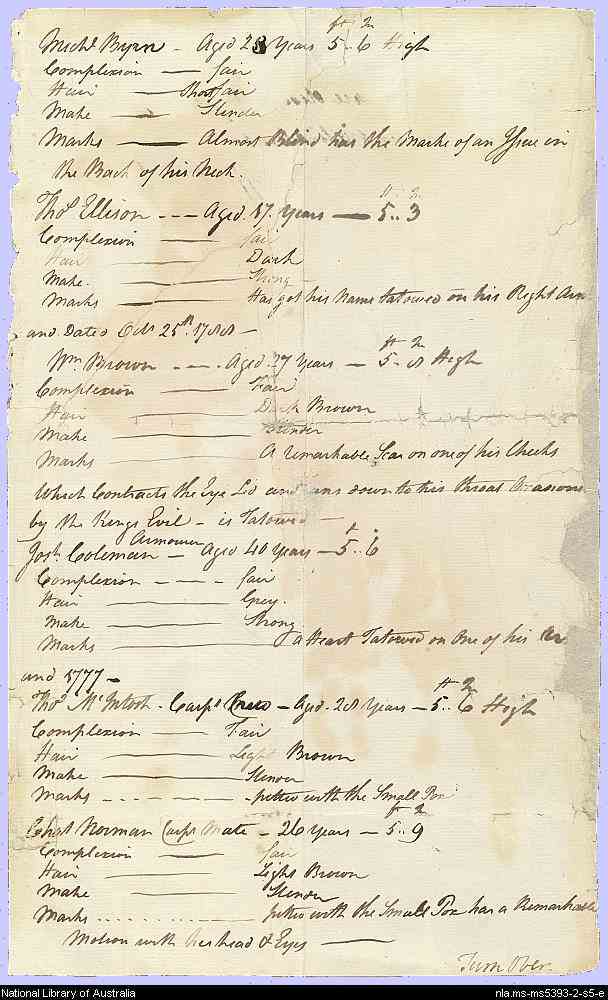 ft In
Michl Byrn - Aged 28 Years 5.. 6 High
Complexion — fair
Hair — Short fair
Make — Slender
Marks — Almost Blind has the Marke of an Issue in
the Back of his Neck.
ft In
Thos Ellison --- Aged 17 Years — 5.. 3
Complexion — fair
Hair — Dark
Make — Strong
Marks — Has got his Name tatowed on his Right Arm
and Dated Octr 25th 1788 —
ft In
Wm Brown --- Aged 27 Years — 5.. 8 High
Complexion — Fair
Hair — Dark Brown
Make — Slender
Marks — A remarkable Scar on one of his Cheeks
Which Contracts the Eye Lid and runs down to his throat Occasioned
by the Kings Evil - is Tatowed —
Josh Coleman Armourer — Aged 40 Years — 5.. 6
Complexion - - - - fair
Hair — Grey.
Make — Strong
Marks — a Heart Tatowed on One of his
and 1777 —
ft In
Thos McIntosh - Carprs Crew — Aged 28 Years — 5.. 6 High
Complexion — Fair
Hair — Light Brown
Make — Slender
Marks - - - - - - - pitted with the Small Pox
ft In
Chas Norman Carprs Mate — 26 Years — 5.. 9
Complexion — fair
Hair — Light Brown
Make — Slender
Marks - - - - - - - pitted with the Small Pox has a Remarkable
Motion with his head & Eyes —
Turn Over.
National Library of Australia nla.ms-ms5393-2-s5-e